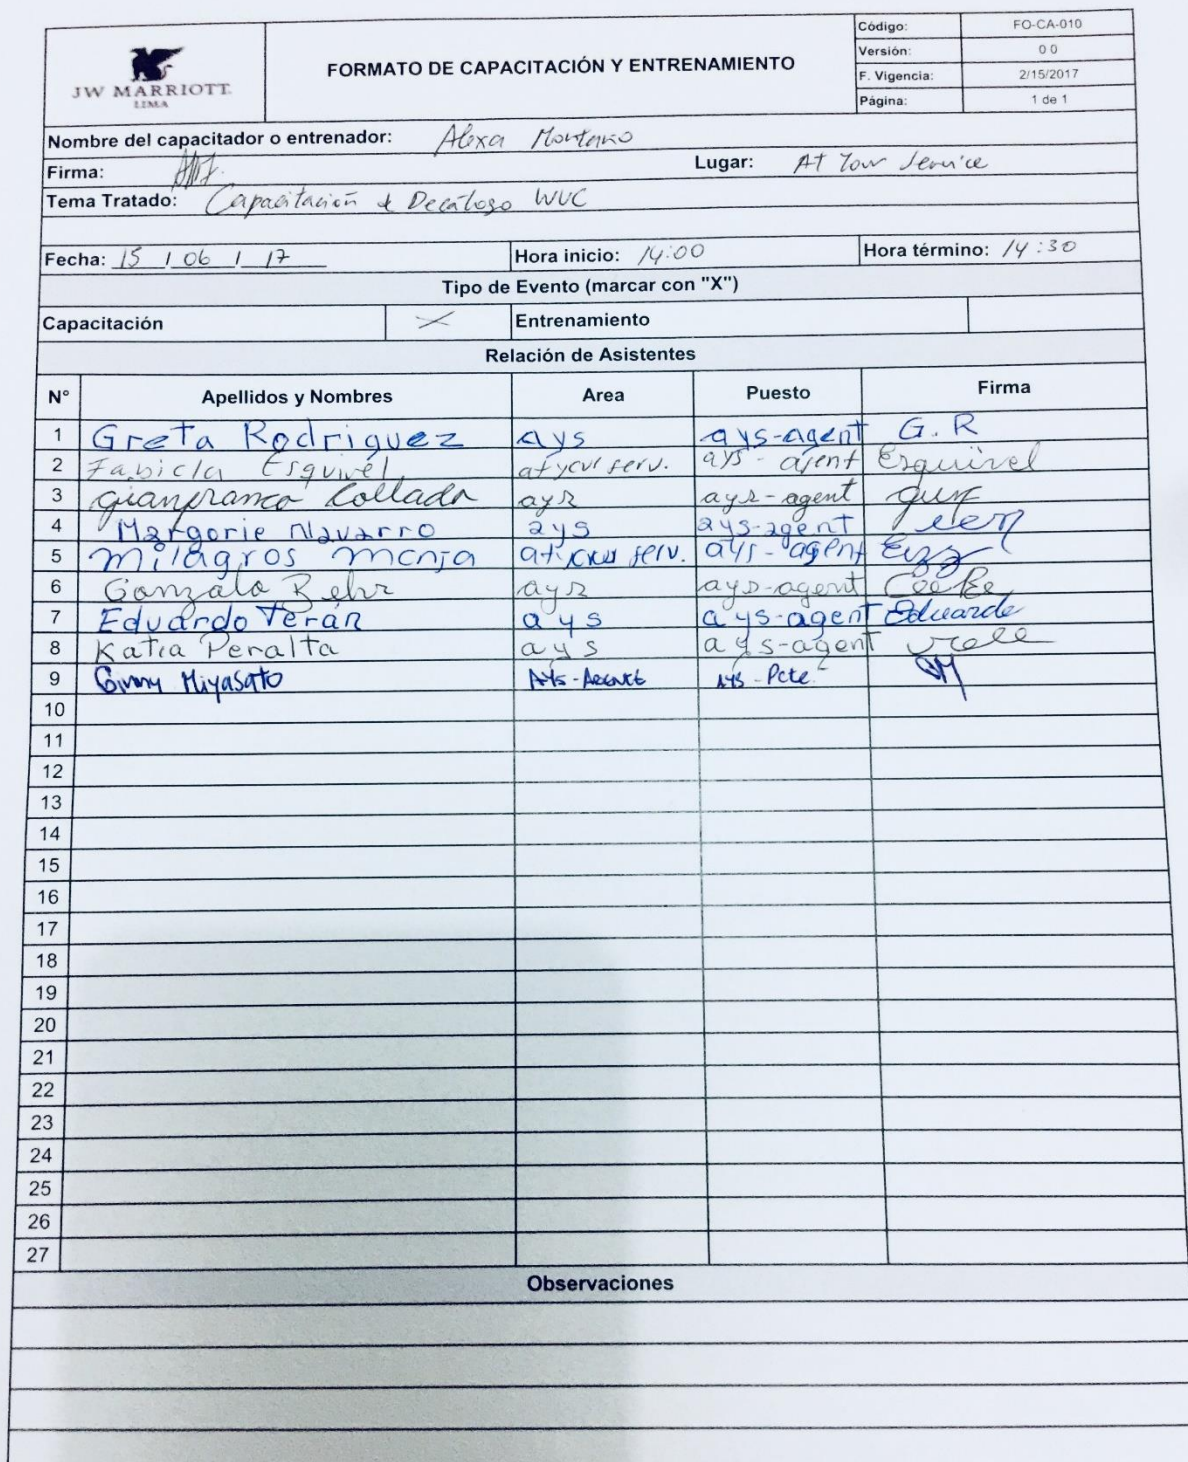 JW MARRIOTT
LIMA
FORMATO DE CAPACITACIÓN Y ENTRENAMIENTO
Código: FO-CA-010
Versión: 0 0
F. Vigencia: 2/15/2017
Página: 1 de 1
Nombre del capacitador o entrenador: Alexa Montano
Firma: Lugar: At Your Service
Tema Tratado: Capacitación & Decálogo WUC
Fecha: 15 / 06 / 17 Hora inicio: 14:00 Hora término: 14:30
Tipo de Evento (marcar con "X")
Capacitación X Entrenamiento
Relación de Asistentes
N° Apellidos y Nombres Area Puesto Firma
1 Greta Rodriguez ays ays-agent G.R
2 Fabiola Esquivel at your serv. ays-agent Esquivel
3 gianfranco Collada ays ays-agent
4 Margorie Navarro ays ays-agent
5 milagros ays-agent
6 Gonzalo Behr ays ays-agent
7 Eduardo Terán ays ays-agent Eduardo
8 Katia Peralta ays ays-agent
9 Ginny Miyasato AYS-Agente AYS-Pcte.
10
11
12
13
14
15
16
17
18
19
20
21
22
23
24
25
26
27
Observaciones